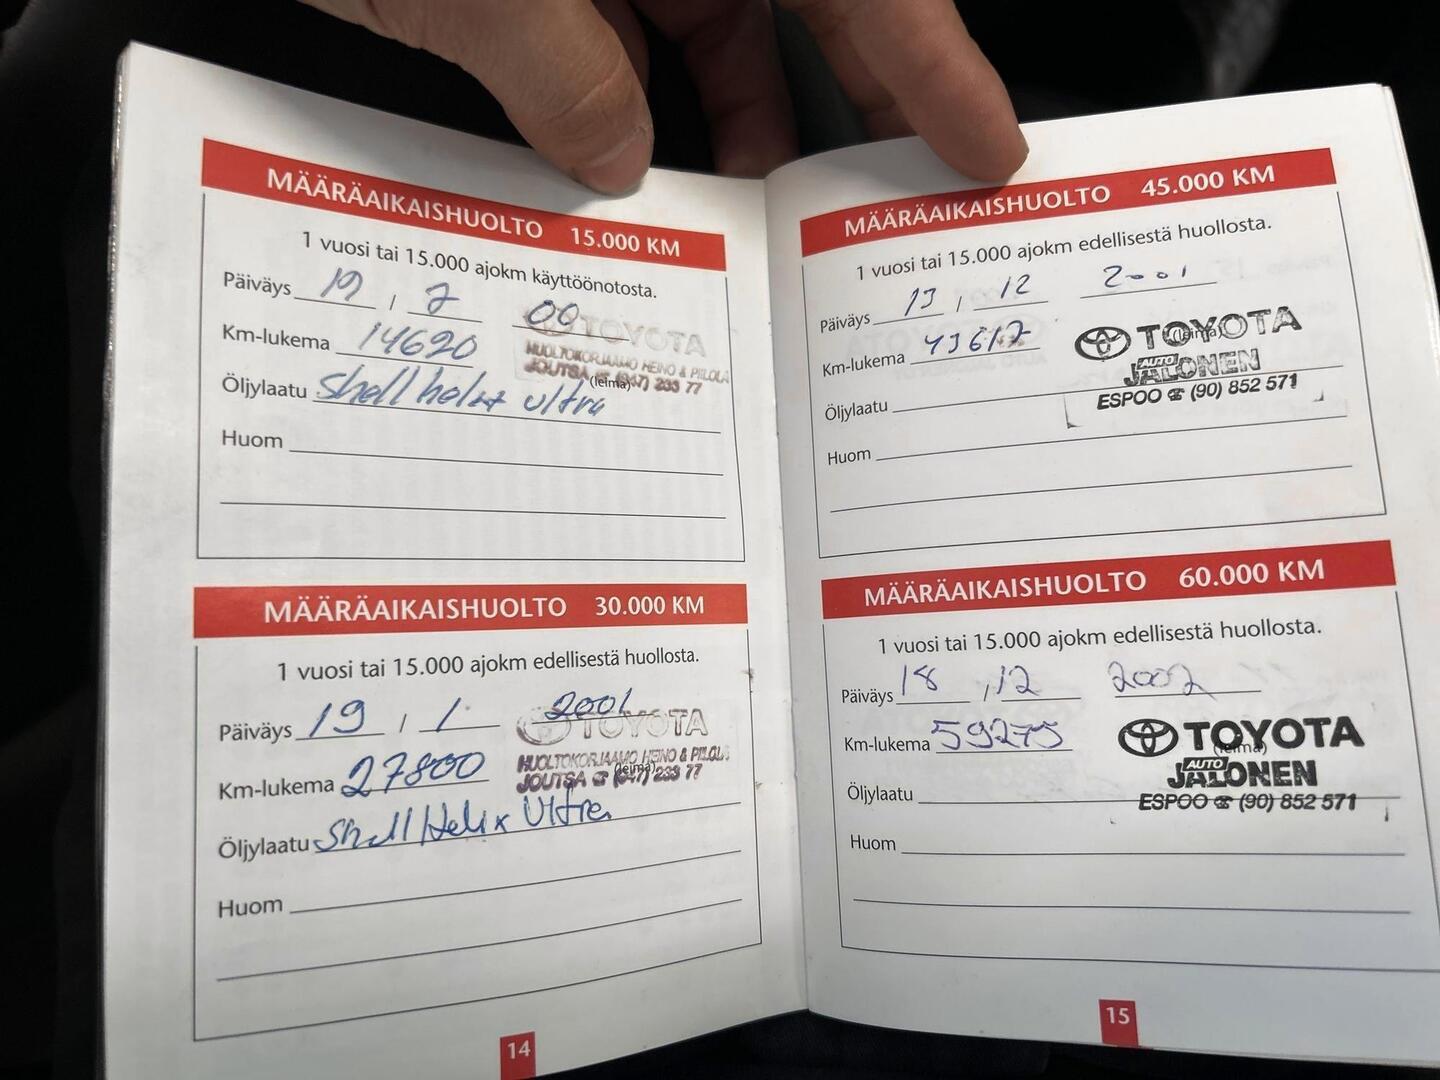 MÄÄRÄAIKAISHUOLTO 15.000 KM
1 vuosi tai 15.000 ajokm käyttöönotosta.
Päiväys 19 / 7 00
TOYOTA
Km-lukema 14620
HUOLTOKORJAAMO HEINO & PIILOLA
JOUTSA ☎ (947) 233 77
(leima)
Öljylaatu Shell helix ultra
Huom
MÄÄRÄAIKAISHUOLTO 30.000 KM
1 vuosi tai 15.000 ajokm edellisestä huollosta.
Päiväys 19 / 1 2001
TOYOTA
Km-lukema 27800
HUOLTOKORJAAMO HEINO & PIILOLA
JOUTSA ☎ (947) 233 77
(leima)
Öljylaatu Shell Helix Ultra
Huom
14
MÄÄRÄAIKAISHUOLTO 45.000 KM
1 vuosi tai 15.000 ajokm edellisestä huollosta.
Päiväys 13 / 12 2001
Km-lukema 43617
TOYOTA
(leima)
AUTO
JALONEN
ESPOO ☎ (90) 852 571
Öljylaatu
Huom
MÄÄRÄAIKAISHUOLTO 60.000 KM
1 vuosi tai 15.000 ajokm edellisestä huollosta.
Päiväys 18 / 12 2002
Km-lukema 59275
TOYOTA
(leima)
AUTO
JALONEN
ESPOO ☎ (90) 852 571
Öljylaatu
Huom
15